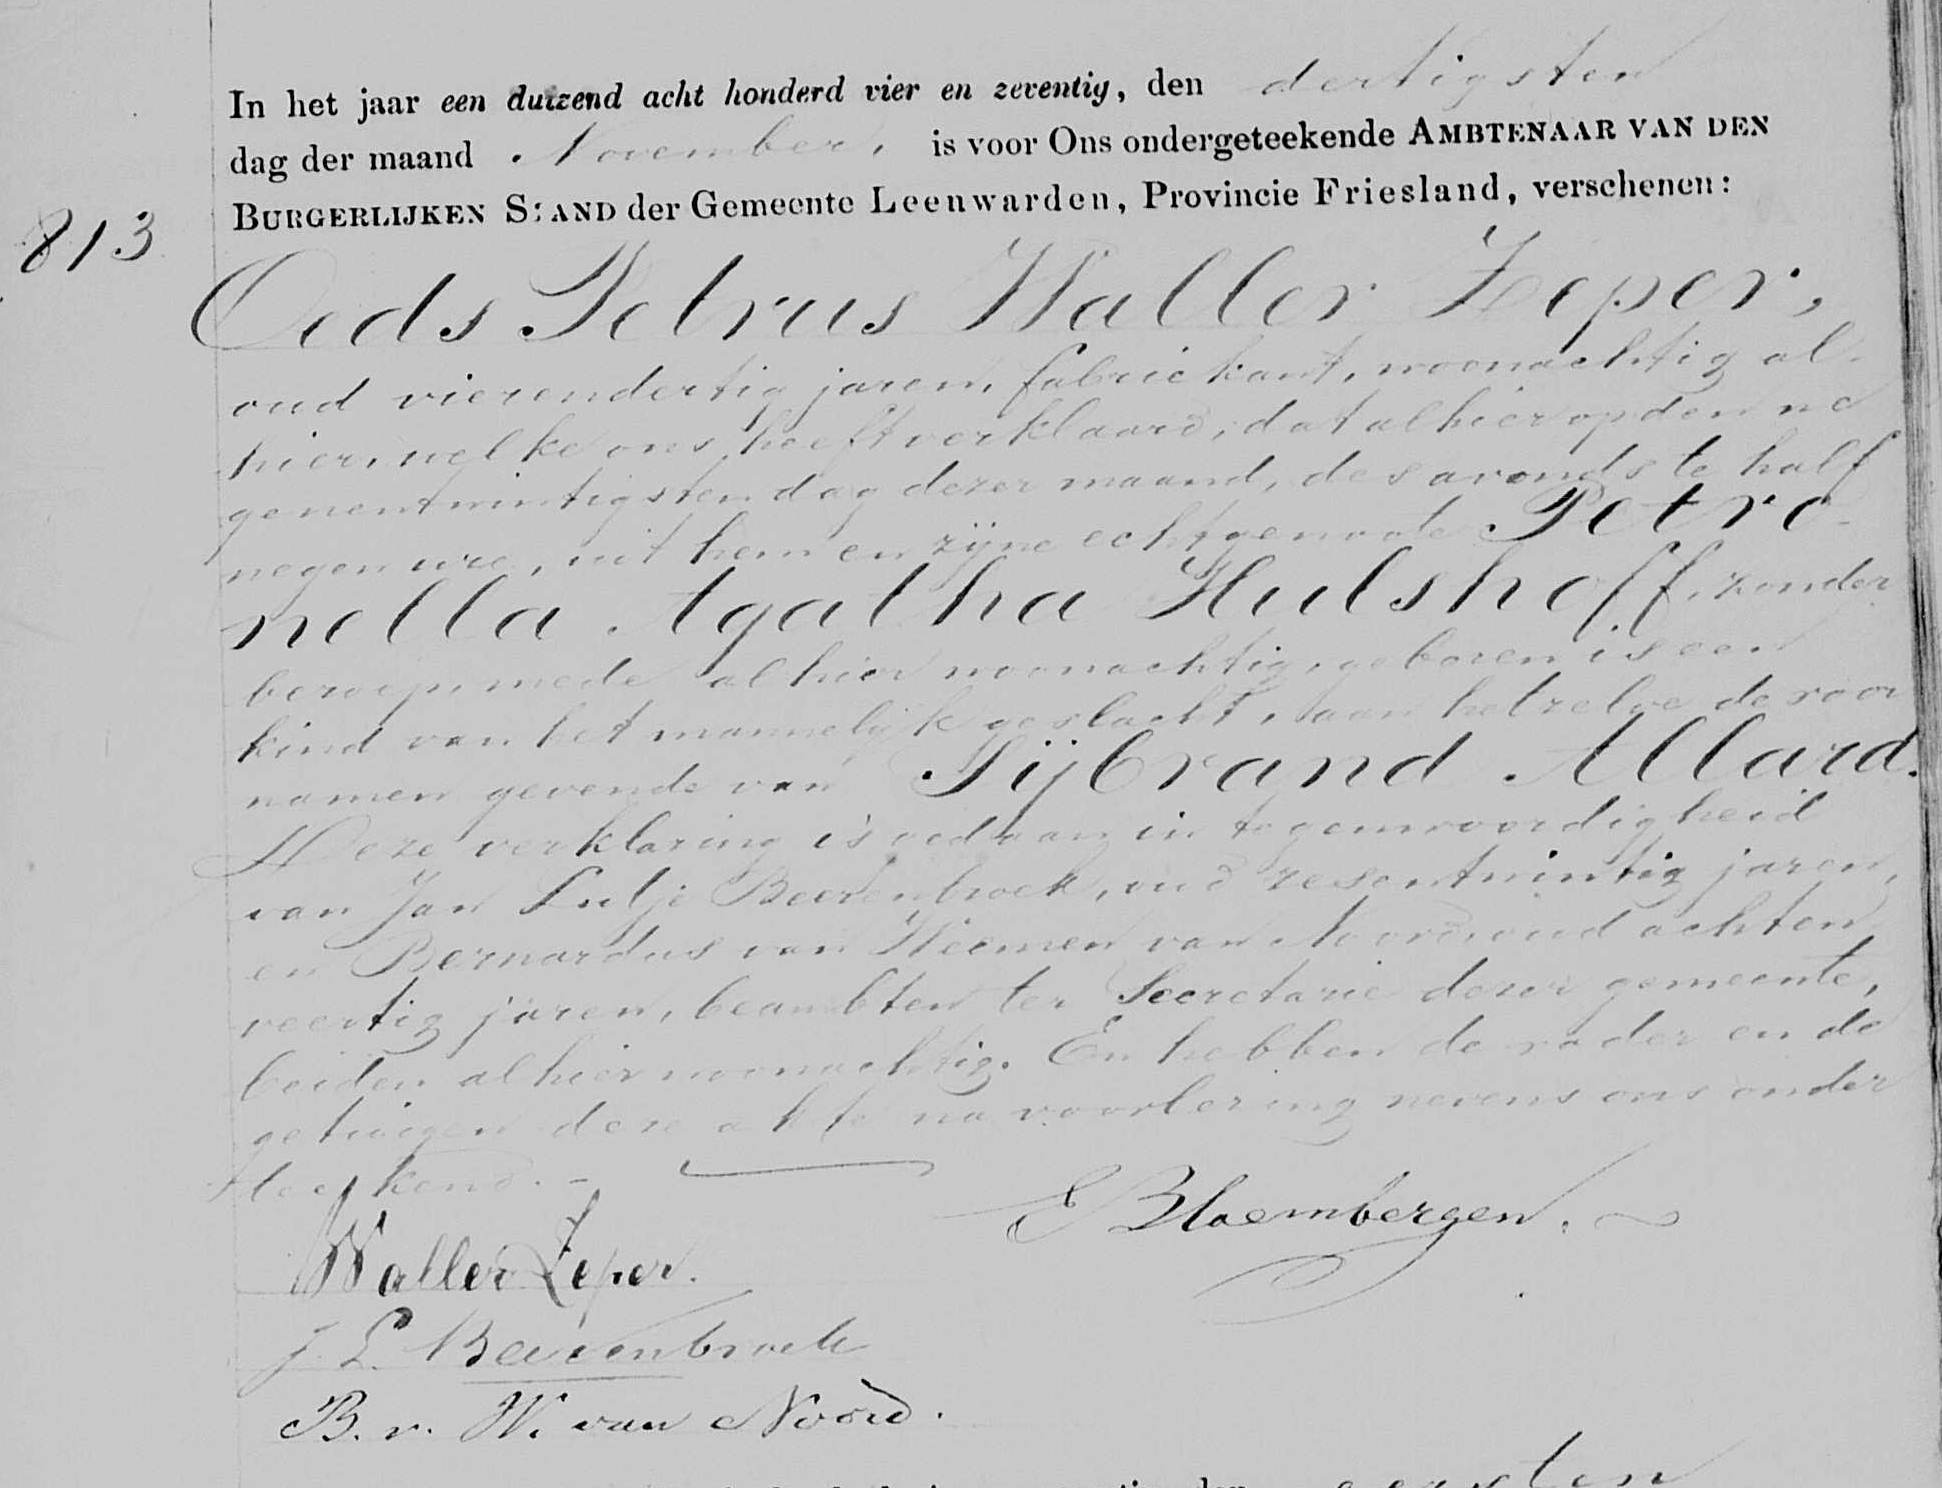 In het jaar een duizend acht honderd vier en zeventig, den dertigsten
dag der maand November, is voor Ons ondergeteekende AMBTENAAR VAN DEN
BURGERLIJKEN STAND der Gemeente Leeuwarden, Provincie Friesland, verschenen:
813
Oeds Petrus Waller Zeper,
oud vierendertig jaren, fabriekant, woonachtig al-
hier, welke ons heeft verklaard, dat alhier op den ne
genentwintigsten dag dezer maand, des avonds te half
negen ure, uit hem en zijne echtgenoote Petro-
nella Agatha Hulshoff, zonder
beroep, mede alhier woonachtig, geboren is een
kind van het mannelijk geslacht, aan hetzelve de voor
namen gevende van Sijbrand Allard.
Deze verklaring is gedaan in tegenwoordigheid
van Jan Lutje Beerenbroek, oud zesentwintig jaren,
en Bernardus van Weemen van Noord, oud achten
veertig jaren, beambten ter Secretarie dezer gemeente,
beiden alhier woonachtig. En hebben de vader en de
getuigen deze akte na voorlezing nevens ons onder
teekend. -
E Bloembergen.
Waller Zeper.
J. L. Beerenbroek
B. v. W. van Noord.
eersten